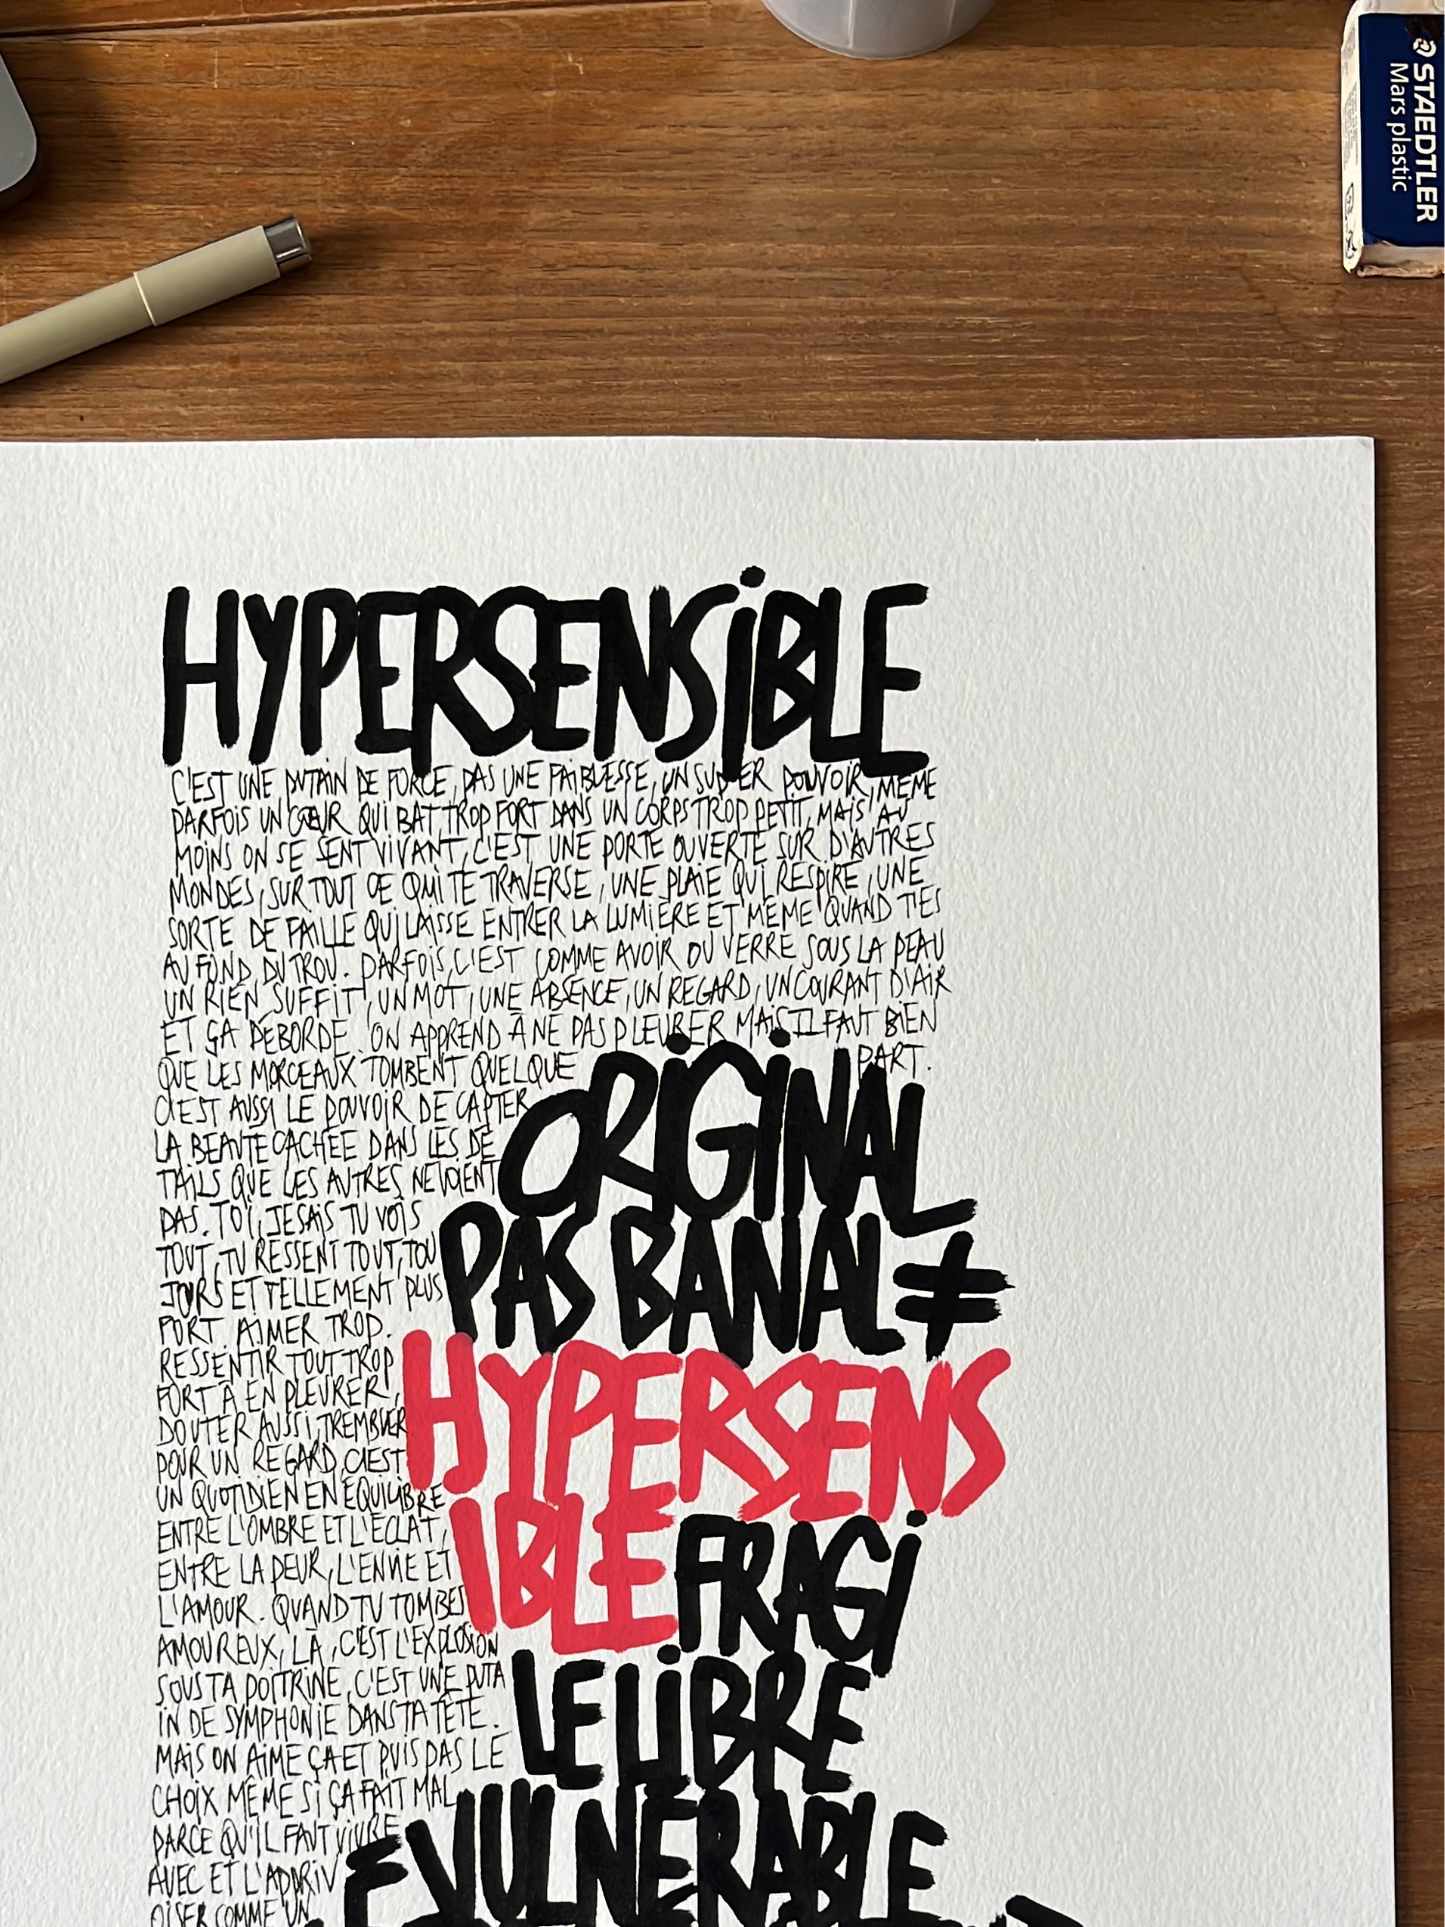 STAEDTLER
Mars plastic
HYPERSENSiBLE
C'EST UNE PUTAIN DE FORCE, PAS UNE FAIBLESSE, UN SUPER POUVOIR, MÊME
PARFOIS UN CŒUR QUI BAT TROP FORT DANS UN CORPS TROP PETIT, MAIS AU
MOINS ON SE SENT VIVANT, C'EST UNE PORTE OUVERTE SUR D'AUTRES
MONDES, SURTOUT CE QUI TE TRAVERSE, UNE PLAIE QUI RESPIRE, UNE
SORTE DE FAILLE QUI LAISSE ENTRER LA LUMIÈRE ET MÊME QUAND T'ES
AU FOND DU TROU. PARFOIS, C'EST COMME AVOIR DU VERRE SOUS LA PEAU
UN RIEN SUFFIT, UN MOT, UNE ABSENCE, UN REGARD, UN COURANT D'AIR
ET ÇA DÉBORDE. ON APPREND À NE PAS PLEURER MAIS IL FAUT BIEN
QUE LES MORCEAUX TOMBENT QUELQUE PART.
C'EST AUSSI LE POUVOIR DE CAPTER
LA BEAUTE CACHÉE DANS LES DÉ
TAILS QUE LES AUTRES NE VOIENT
PAS. TOI, JE SAIS TU VOIS
TOUT, TU RESSENT TOUT, TOU
JOURS ET TELLEMENT PLUS
FORT. AIMER TROP.
RESSENTIR TOUT TROP
FORT À EN PLEURER,
DOUTER AUSSI, TREMBLER
POUR UN REGARD, C'EST
UN QUOTIDIEN EN ÉQUILIBRE
ENTRE L'OMBRE ET L'ÉCLAT,
ENTRE LA PEUR, L'ENVIE ET
L'AMOUR. QUAND TU TOMBES
AMOUREUX, LÀ, C'EST L'EXPLOSION
SOUS TA POITRINE, C'EST UNE PUTA
IN DE SYMPHONIE DANS TA TÊTE.
MAIS ON AIME ÇA ET PUIS PAS LE
CHOIX MÊME SI ÇA FAIT MAL
PARCE QU'IL FAUT VIVRE
AVEC ET L'APPRIV
OISER COMME UN
ORiGiNAL
PAS BANAL ≠
HYPERSENS
IBLE FRAGi
LE LiBRE
E VULNÉRABLE